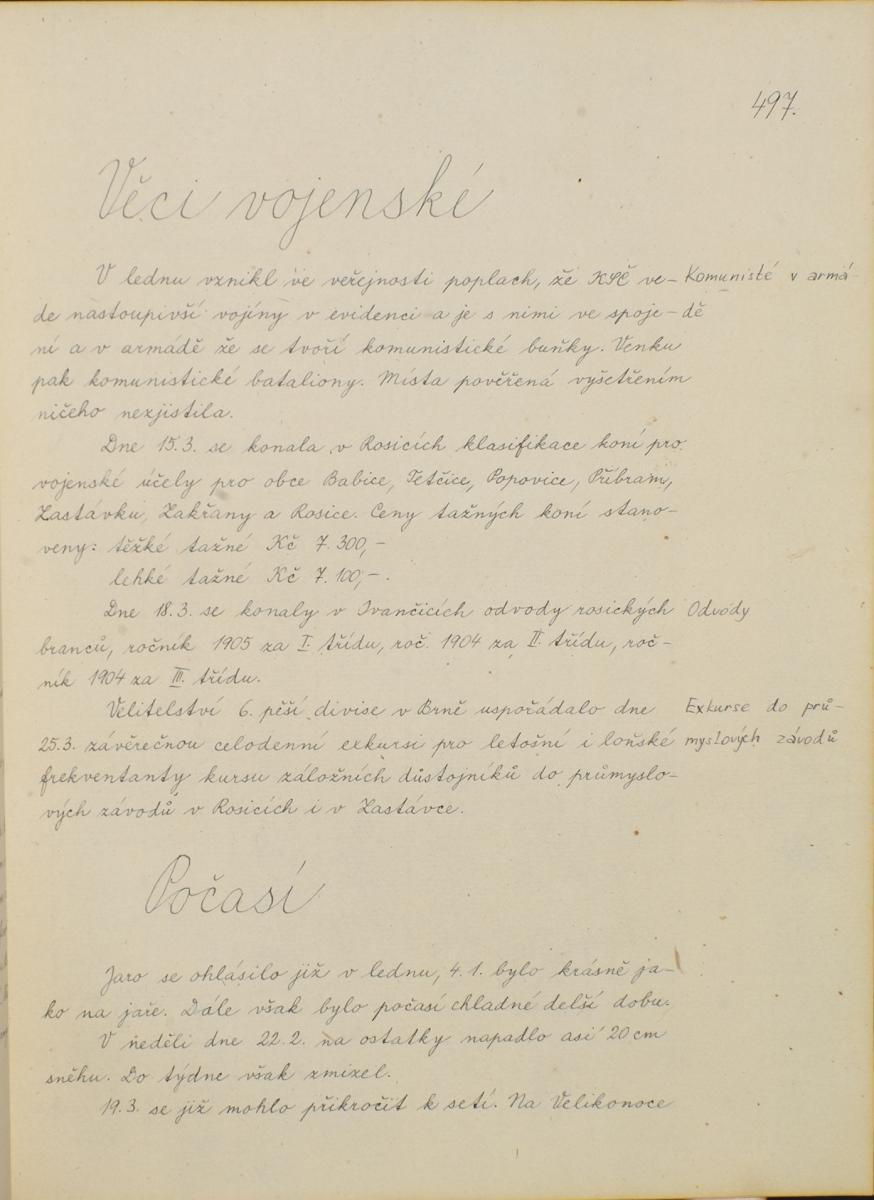 497.
Věci vojenské
V lednu vznikl ve veřejnosti poplach, že KSČ ve-
de nastoupivší vojíny v evidenci a je s nimi ve spoje-
ní a v armádě že se tvoří komunistické buňky. Venku
pak komunistické bataliony. Místa pověřená vyšetřením
ničeho nezjistila.
Komunisté v armá-
dě
Dne 15.3. se konala v Rosicích klasifikace koní pro
vojenské účely pro obce Babice, Tetčice, Popovice, Příbram,
Zastávku, Zakřany a Rosice. Ceny tažných koní stano-
veny: těžké tažné Kč 7.300,-
lehké tažné Kč 7.100,-.
Dne 18.3. se konaly v Ivančicích odvody rosických
branců, ročník 1905 za I. třídu, roč. 1904 za II. třídu, roč-
ník 1904 za III. třídu.
Odvody
Velitelství 6. pěší divise v Brně uspořádalo dne
25.3. závěrečnou celodenní exkursi pro letošní i loňské
frekventanty kursu záložních důstojníků do průmyslo-
vých závodů v Rosicích i v Zastávce.
Exkurse do prů-
myslových závodů
Počasí
Jaro se ohlásilo již v lednu, 4.1. bylo krásně ja-
ko na jaře. Dále však bylo počasí chladné delší dobu.
V neděli dne 22.2. na ostatky napadlo asi 20 cm
sněhu. Do týdne však zmizel.
19.3. se již mohlo přikročit k setí. Na Velikonoce